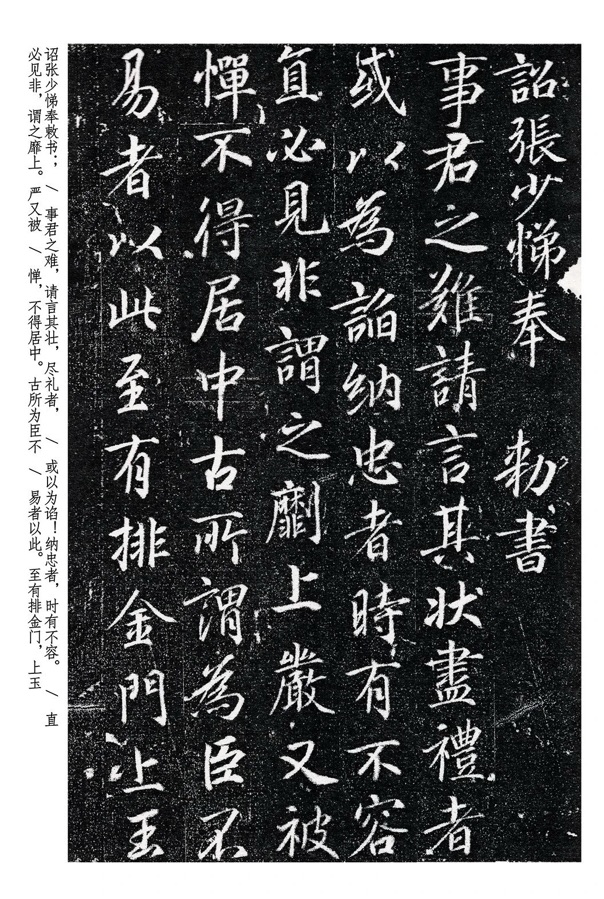 詔張少悌奉 勅書
事君之難請言其狀盡禮者
或以為諂納忠者時有不容
直必見非謂之劘上嚴又被
憚不得居中古所謂為臣不
易者以此至有排金門上玉
诏张少悌奉敕书； / 事君之难，请言其壮，尽礼者， / 或以为谄！纳忠者，时有不容。 / 直
必见非，谓之靡上。严又被 / 惮，不得居中。古所为臣不 / 易者以此。至有排金门，上玉